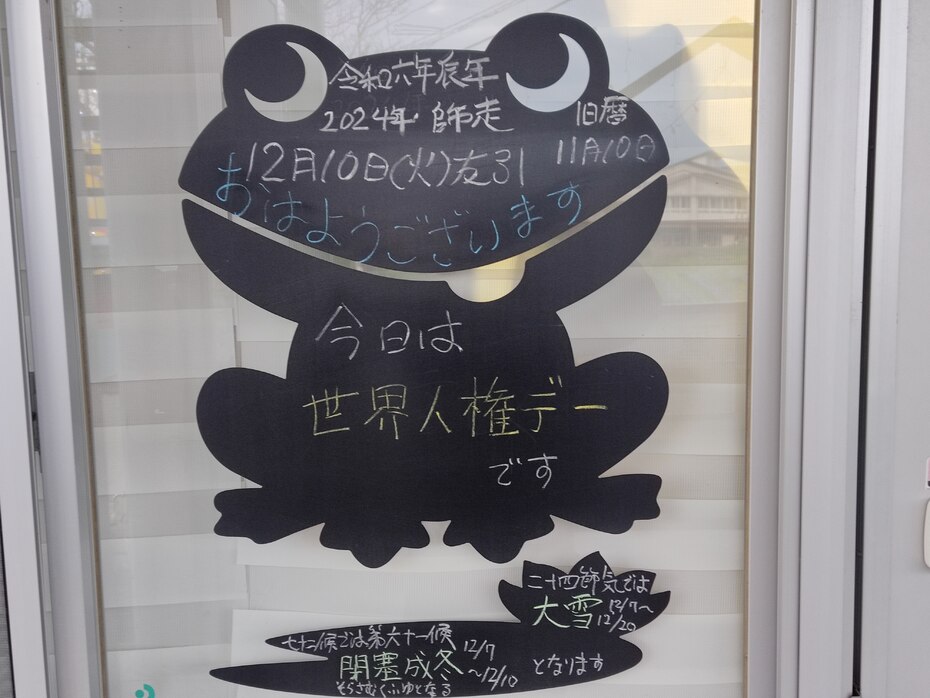 令和六年辰年
2024年・師走
旧暦
12月10日(火)友引
11月10日
おはようございます
今日は
世界人権デー
です
二十四節気では
大雪 12/7〜
12/20
七十二候では第六十一候
閉塞成冬 12/7
〜12/10
そらさむくふゆとなる
となります